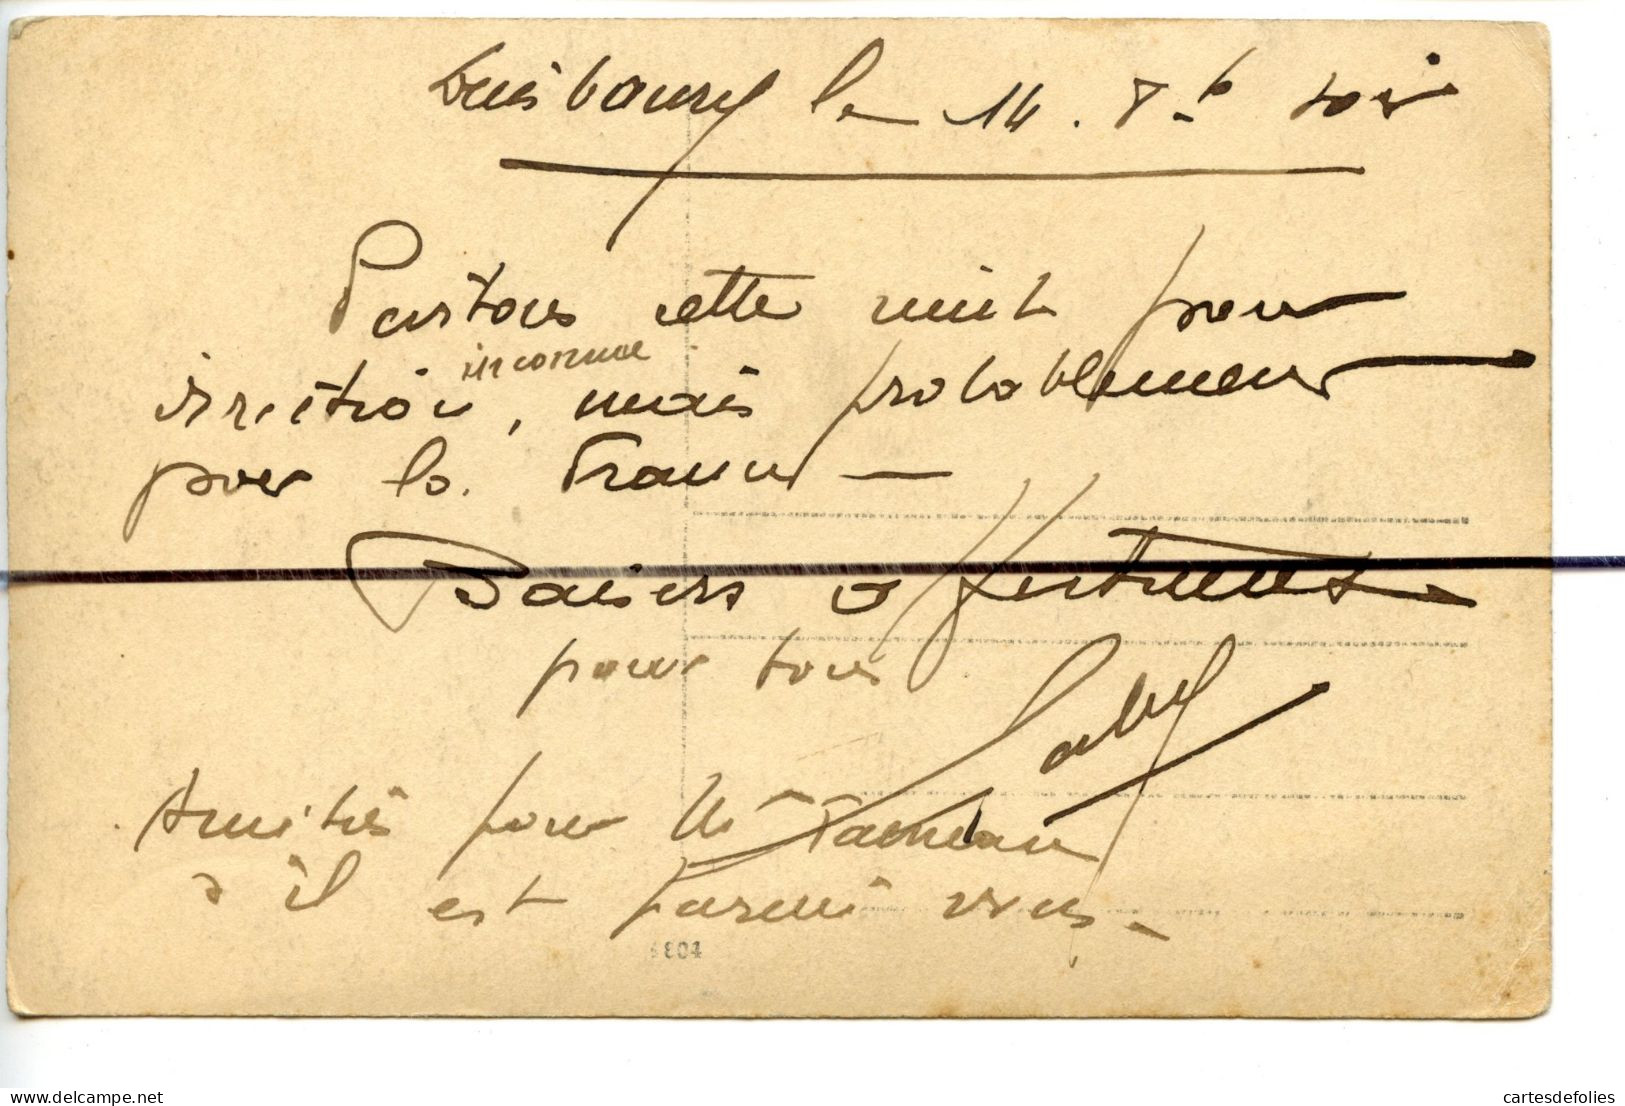 Duisbourg le 14. 8.b soir
Partons cette nuit pour
inconnue
direction, mais probablement
pour la France —
Baisers affectueux
pour tous
Amitiés pour Mr
s'il est parmi vous.
4804
delcampe.net
cartesdefolies